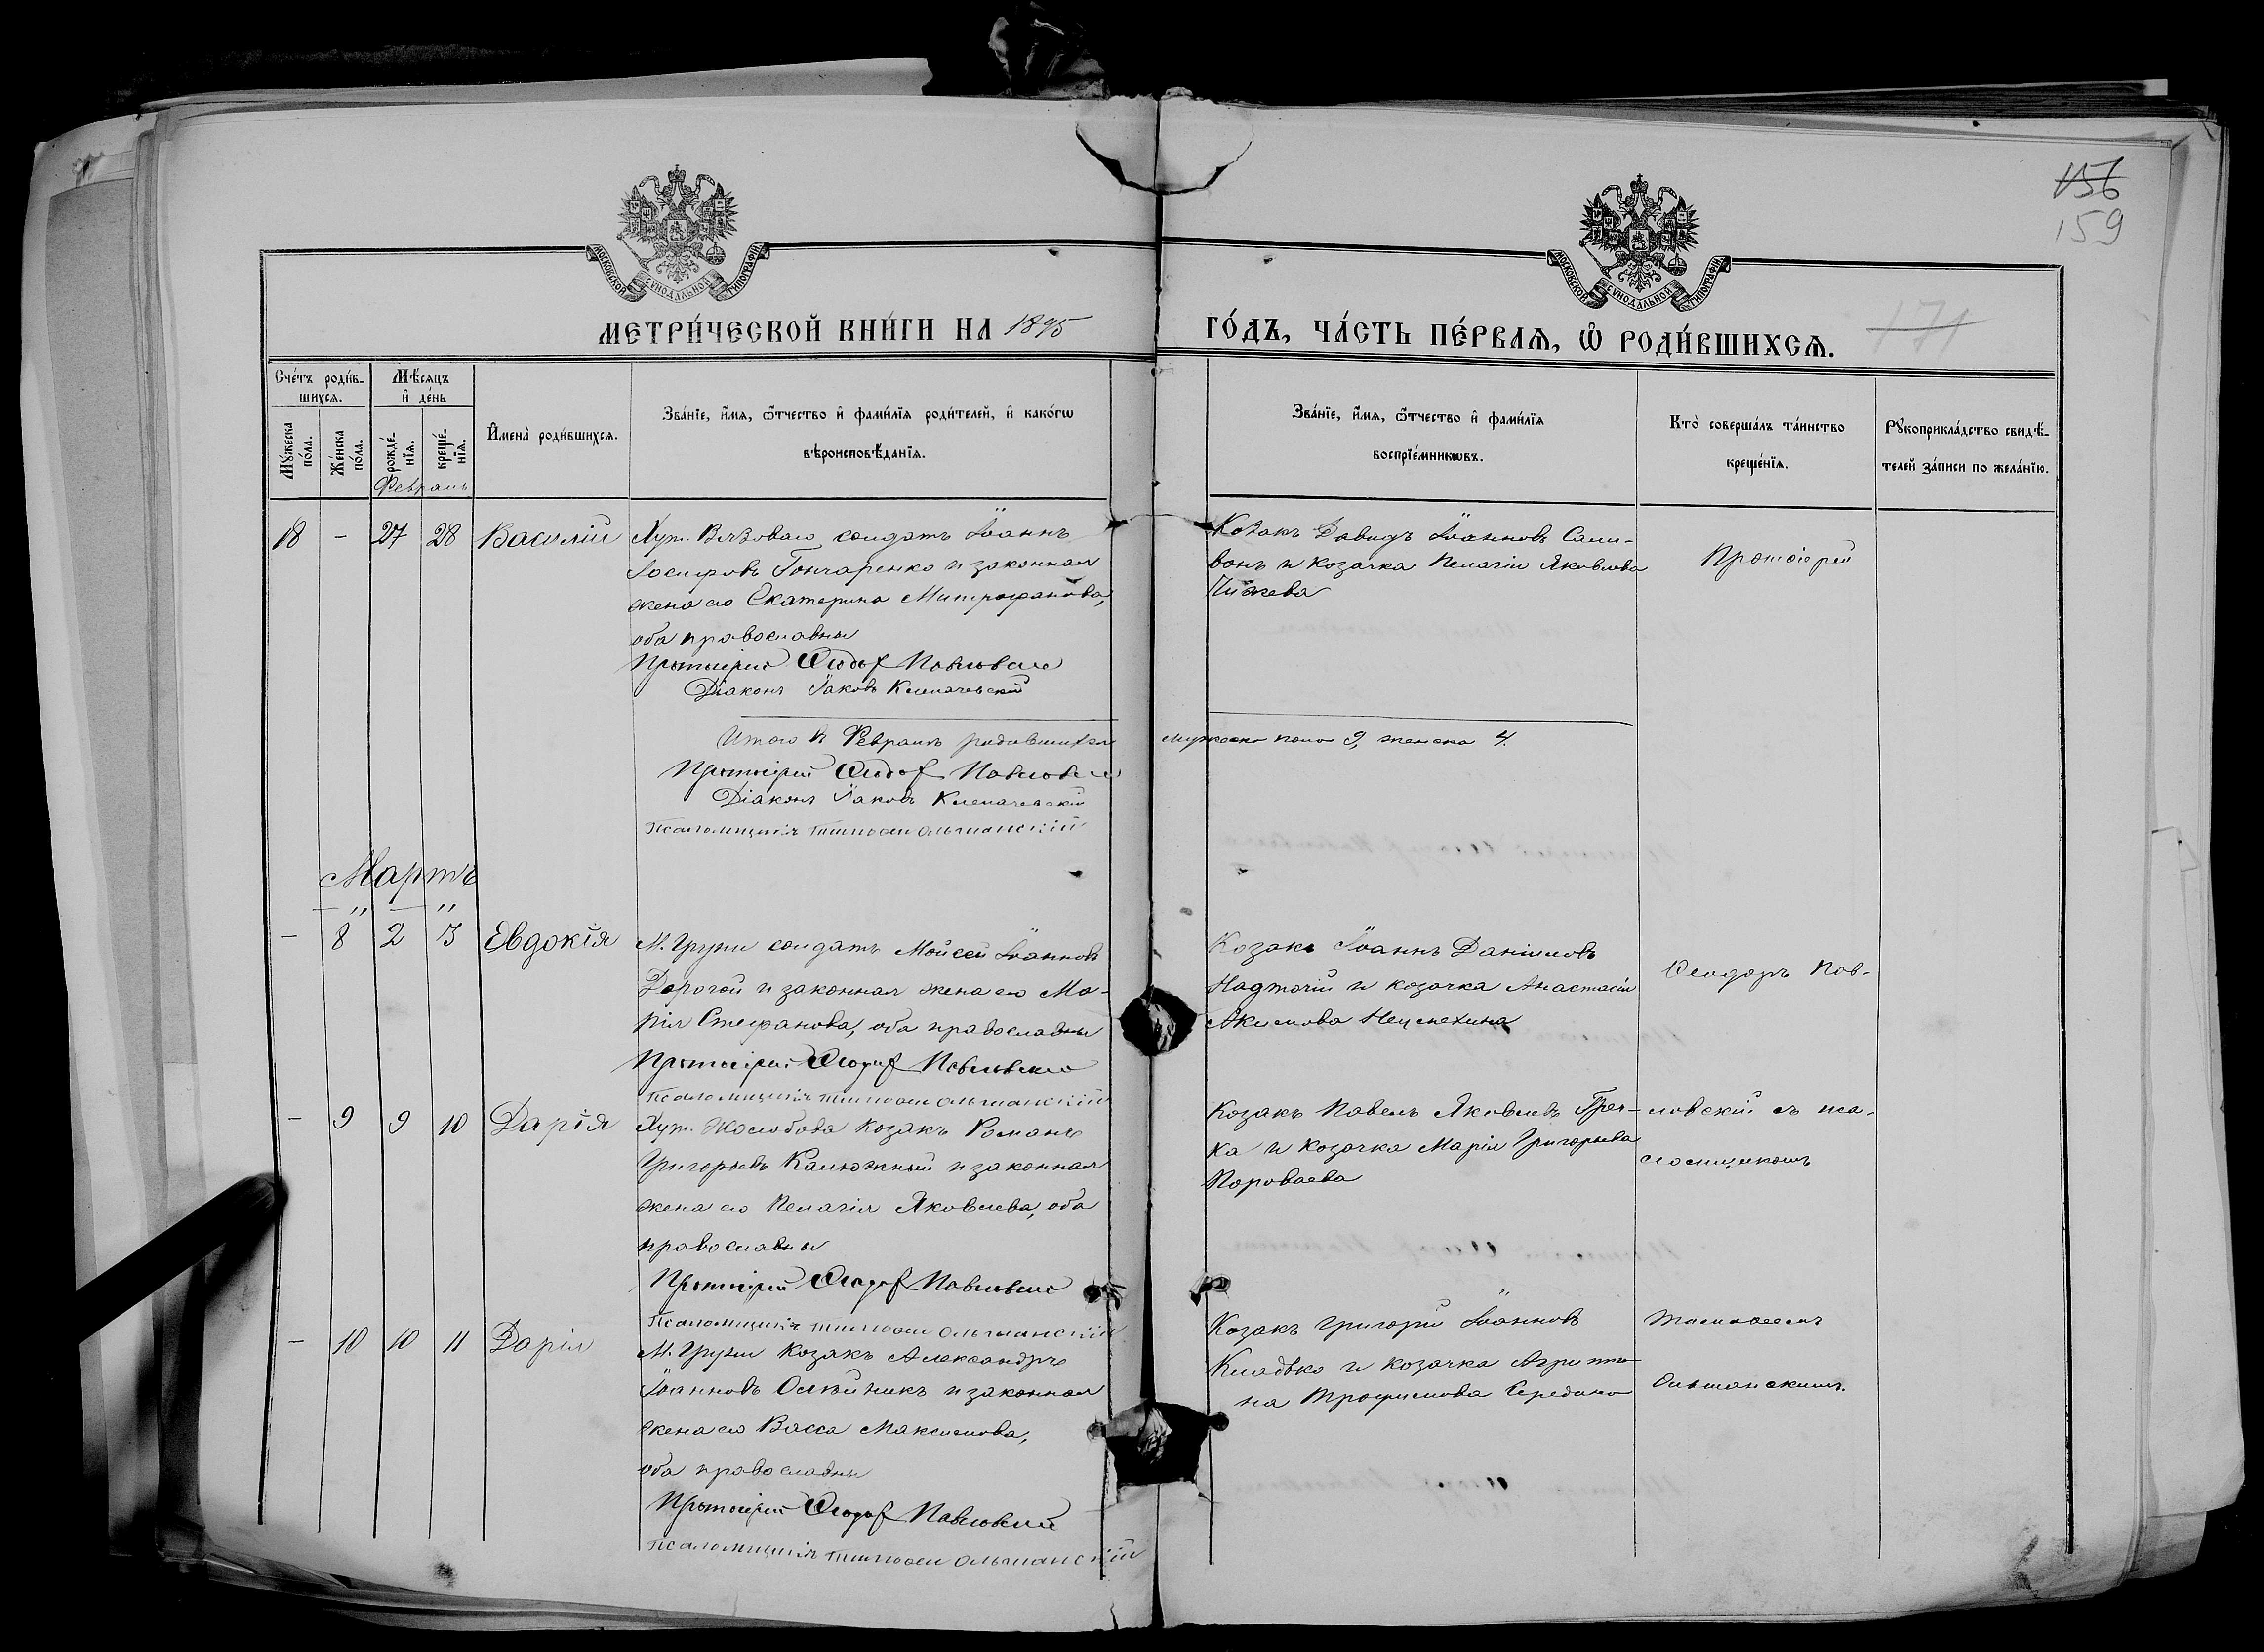 156
159
171
МОСКОВСКОЙ СѴНОДАЛЬНОЙ ТИПОГРАФІИ
МОСКОВСКОЙ СѴНОДАЛЬНОЙ ТИПОГРАФІИ
МЕТРИ́ЧЕСКОЙ КНИ́ГИ НА 1895
ГО́ДЪ, ЧА́СТЬ ПЕ́РВАѦ, Ѡ РОДИ́ВШИХСѦ.
Сче́тъ роди́в-
шихсѧ.
Мѣ́сѧцъ
и҆ де́нь
Мꙋ́жеска
по́ла.
Же́нска
по́ла.
рожде́-
нїѧ.
креще́-
нїѧ.
Февраль
И҆мена̀ роди́вшихсѧ.
Зва́нїе, и҆́мѧ, ѻ҆́тчество и҆ фами́лїѧ роди́телей, и҆ како́гѡ
вѣроисповѣ́данїѧ.
Зва́нїе, и҆́мѧ, ѻ҆́тчество и҆ фами́лїѧ
воспрїе́мникѡвъ.
Кто̀ соверша́лъ та́инство
креще́нїѧ.
Рꙋкоприкла́дство свидѣ́-
телей за́писи по жела́нїю.
18 - 27 28 Василій
Хут. Вязоваго солдатъ Іоаннъ
Іосифовъ Гончаренко и законная
жена его Екатерина Митрофанова,
оба православны
Протоіерей Ѳеодоръ Павловскій
Діаконъ Іаковъ
Козакъ Давидъ Іоанновъ Сали-
вонъ и козачка Пелагія Яковлева
Чижева
Протоіерей
Итого въ Февралѣ родившихся мужеска пола 9, женска 4.
Протоіерей Ѳеодоръ Павловскій
Діаконъ Іаковъ
Псаломщикъ Тимоѳей Ольшанскій
Мартъ
- 8 2 3 Евдокія
М. Груни солдатъ Мойсей Іоанновъ
Дорогой и законная жена его Ма-
рія Стефанова, оба православны
Протоіерей Ѳеодоръ Павловскій
Псаломщикъ Тимоѳей Ольшанскій
Козакъ Іоаннъ Даніиловъ
Надточій и козачка Анастасія
Акимова
Ѳеодоръ Пав-
- 9 9 10 Дарія
Хут. Жолобова козакъ Романъ
Григорьевъ Калюжный и законная
жена его Пелагія Яковлева, оба
православны
Протоіерей Ѳеодоръ Павловскій
Псаломщикъ Тимоѳей Ольшанскій
Козакъ Павелъ Яковлевъ Греч-
ка и козачка Марія Григорьева
Пороваева
ловскій съ пса-
ломщикомъ
- 10 10 11 Дарія
М. Груни козакъ Александръ
Іоанновъ Олѣйникъ и законная
жена его Васса Максимова,
оба православны
Протоіерей Ѳеодоръ Павловскій
Псаломщикъ Тимоѳей Ольшанскій
Козакъ Григорій Іоанновъ
Кладько и козачка Агрипи-
на Трофимова Середина
Тимоѳеемъ
Ольшанскимъ.